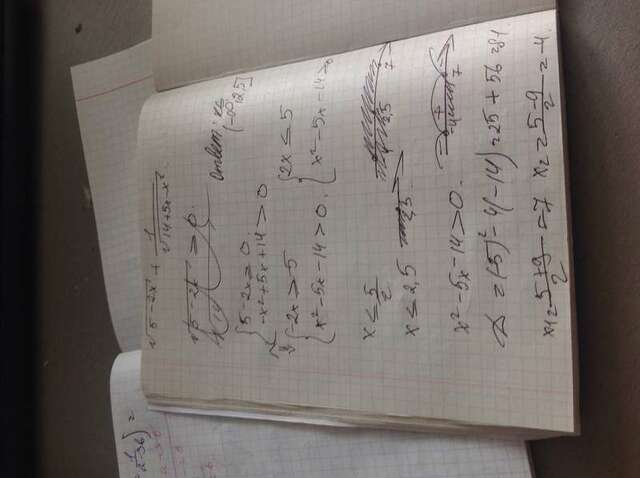 √5-2x + 1/√14+5x-x²
√5-2x ≥ 0.
Ответ: x ∈
(-∞; 2,5]
{5-2x ≥ 0.
-x²+5x+14 > 0
{-2x ≥ -5
x²-5x-14 > 0.
{2x ≤ 5
x²-5x-14 > 0
x ≤ 5/2
-4 2,5 7
x ≤ 2,5
2,5
x²-5x-14 > 0.
+
-4 7
Д = (-5)²-4(-14) = 25 + 56 = 81
x1 = 5+9/2 = 7 x2 = 5-9/2 = -4.